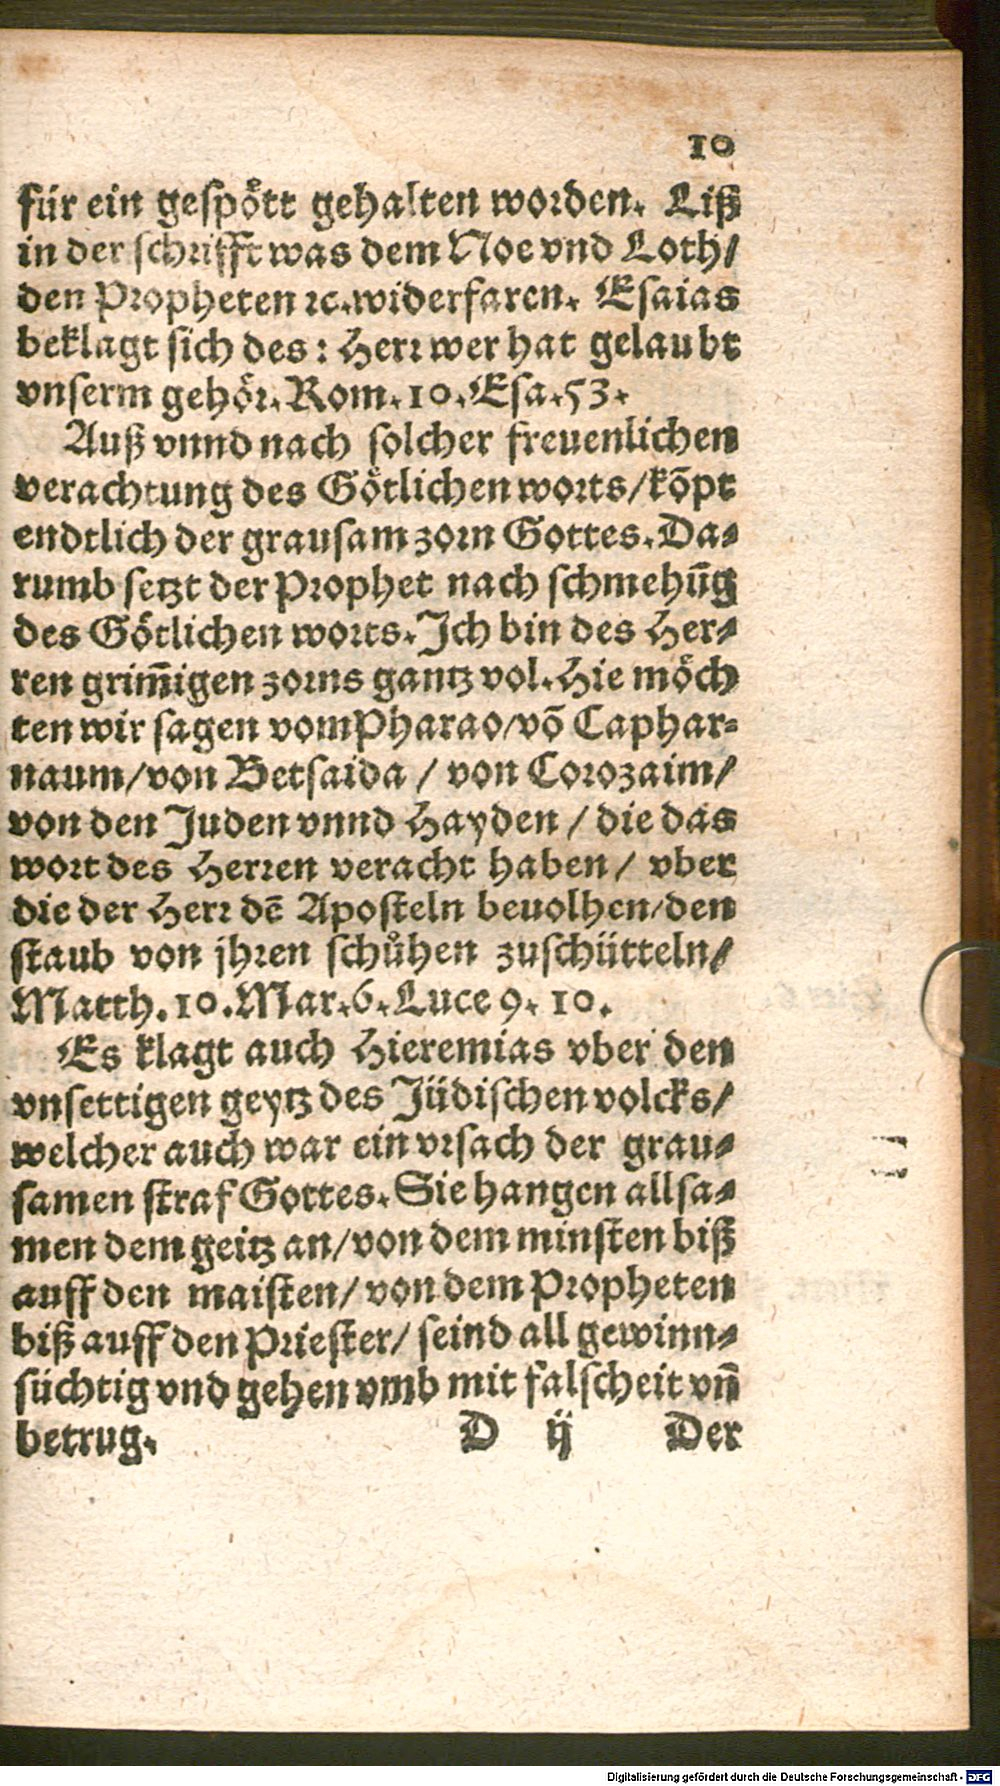 10
für ein gespoͤtt gehalten worden. Liß
in der schrifft was dem Noe vnd Loth/
den Propheten ꝛc. widerfaren. Esaias
beklagt sich des: Herr wer hat gelaubt
vnserm gehoͤr. Rom. 10. Esa. 53.
Auß vnnd nach solcher freuenlichen
verachtung des Goͤtlichen worts/ kõpt
endtlich der grausam zorn Gottes. Da-
rumb setzt der Prophet nach schmehũg
des Goͤtlichen worts. Ich bin des Her-
ren grim̃igen zorns gantz vol. Hie moͤch
ten wir sagen vom Pharao/ võ Caphar-
naum/ von Betsaida / von Corozaim/
von den Juden vnnd Hayden / die das
wort des Herren veracht haben / vber
die der Herr dẽ Aposteln beuolhen/ den
staub von jhren schůhen zuschütteln/
Matth. 10. Mar. 6. Luce 9. 10.
Es klagt auch Hieremias vber den
vnsettigen geytz des Jüdischen volcks/
welcher auch war ein vrsach der grau-
samen straf Gottes. Sie hangen allsa-
men dem geitz an/ von dem minsten biß
auff den maisten/ von dem Propheten
biß auff den Priester/ seind all gewinn-
süchtig vnd gehen vmb mit falscheit vñ
betrug.
D ij Der
Digitalisierung gefördert durch die Deutsche Forschungsgemeinschaft - DFG